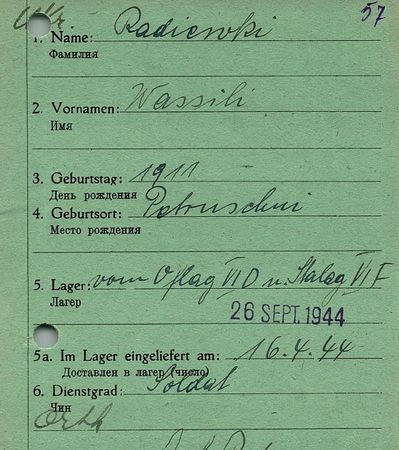 Ukr. 57
1. Name: Radiewski
Фамилия
2. Vornamen: Wassili
Имя
3. Geburtstag: 1911
День рождения
4. Geburtsort: Petruschui
Место рождения
5. Lager: vom Oflag VI D n. Stalag VI F
Лагер
26 SEPT. 1944
5a. Im Lager eingeliefert am: 16.4.44
Доставлен в лагер (число)
6. Dienstgrad: Soldat
Чин
Orth